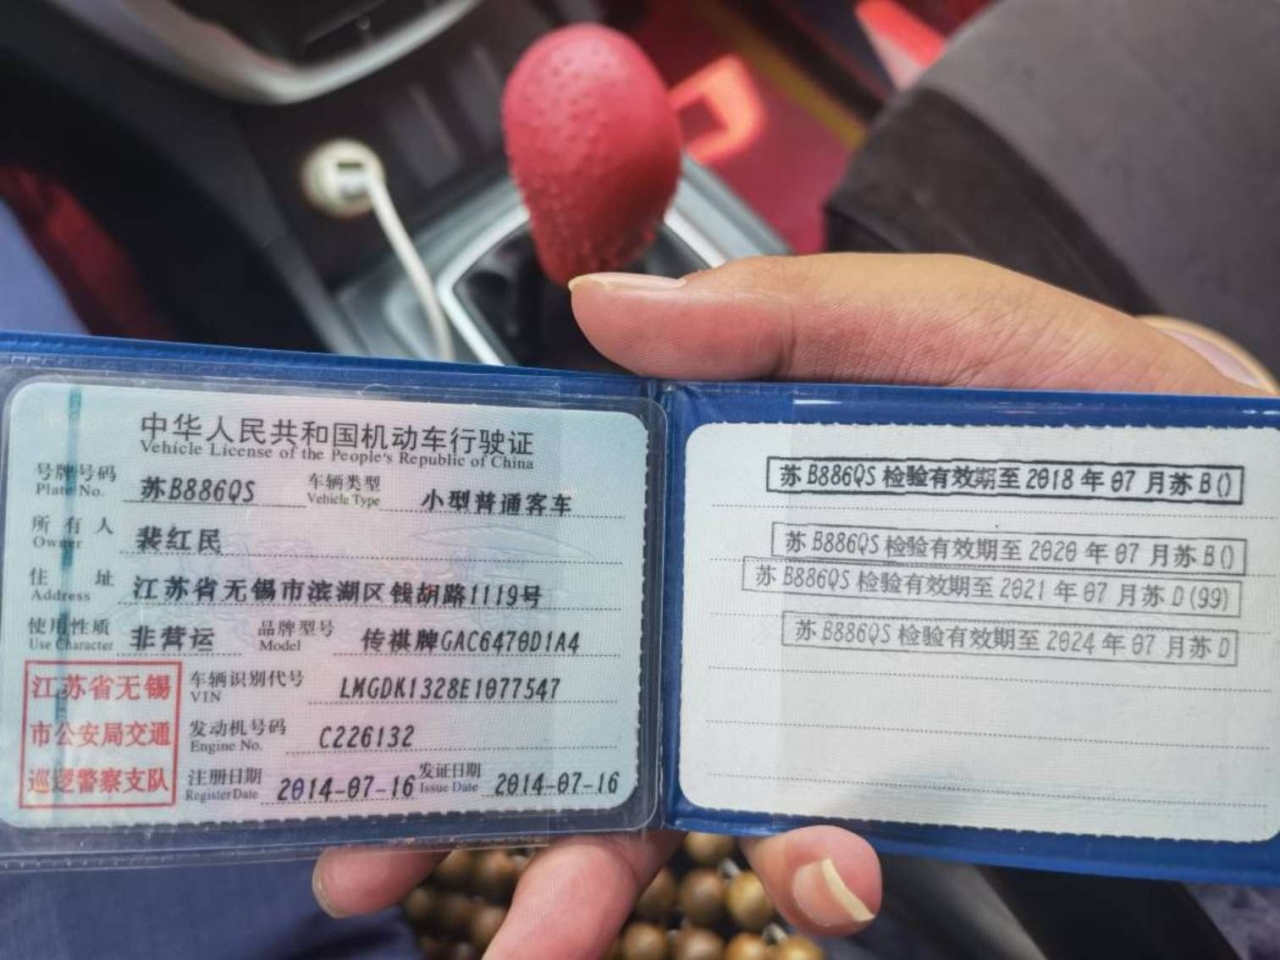 中华人民共和国机动车行驶证
Vehicle License of the People's Republic of China
号牌号码 苏B886QS 车辆类型 小型普通客车
Plate No. Vehicle Type
所有人 裴红民
Owner
住址 江苏省无锡市滨湖区钱胡路1119号
Address
使用性质 非营运 品牌型号 传祺牌GAC6470D1A4
Use Character Model
江苏省无锡
市公安局交通
巡逻警察支队
车辆识别代号 LMGDK1328E1077547
VIN
发动机号码 C226132
Engine No.
注册日期 2014-07-16 发证日期 2014-07-16
Register Date Issue Date
苏B886QS检验有效期至2018年07月苏B()
苏B886QS检验有效期至2020年07月苏B()
苏B886QS检验有效期至2021年07月苏D(99)
苏B886QS检验有效期至2024年07月苏D